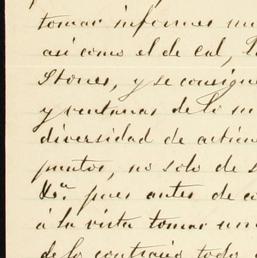 tomar informes
así como el de cal,
Stores, y se consigue
y ventanas de lo
diversidad de
puntos, no solo de
pues antes de
á la vista tomar
de lo contrario todo